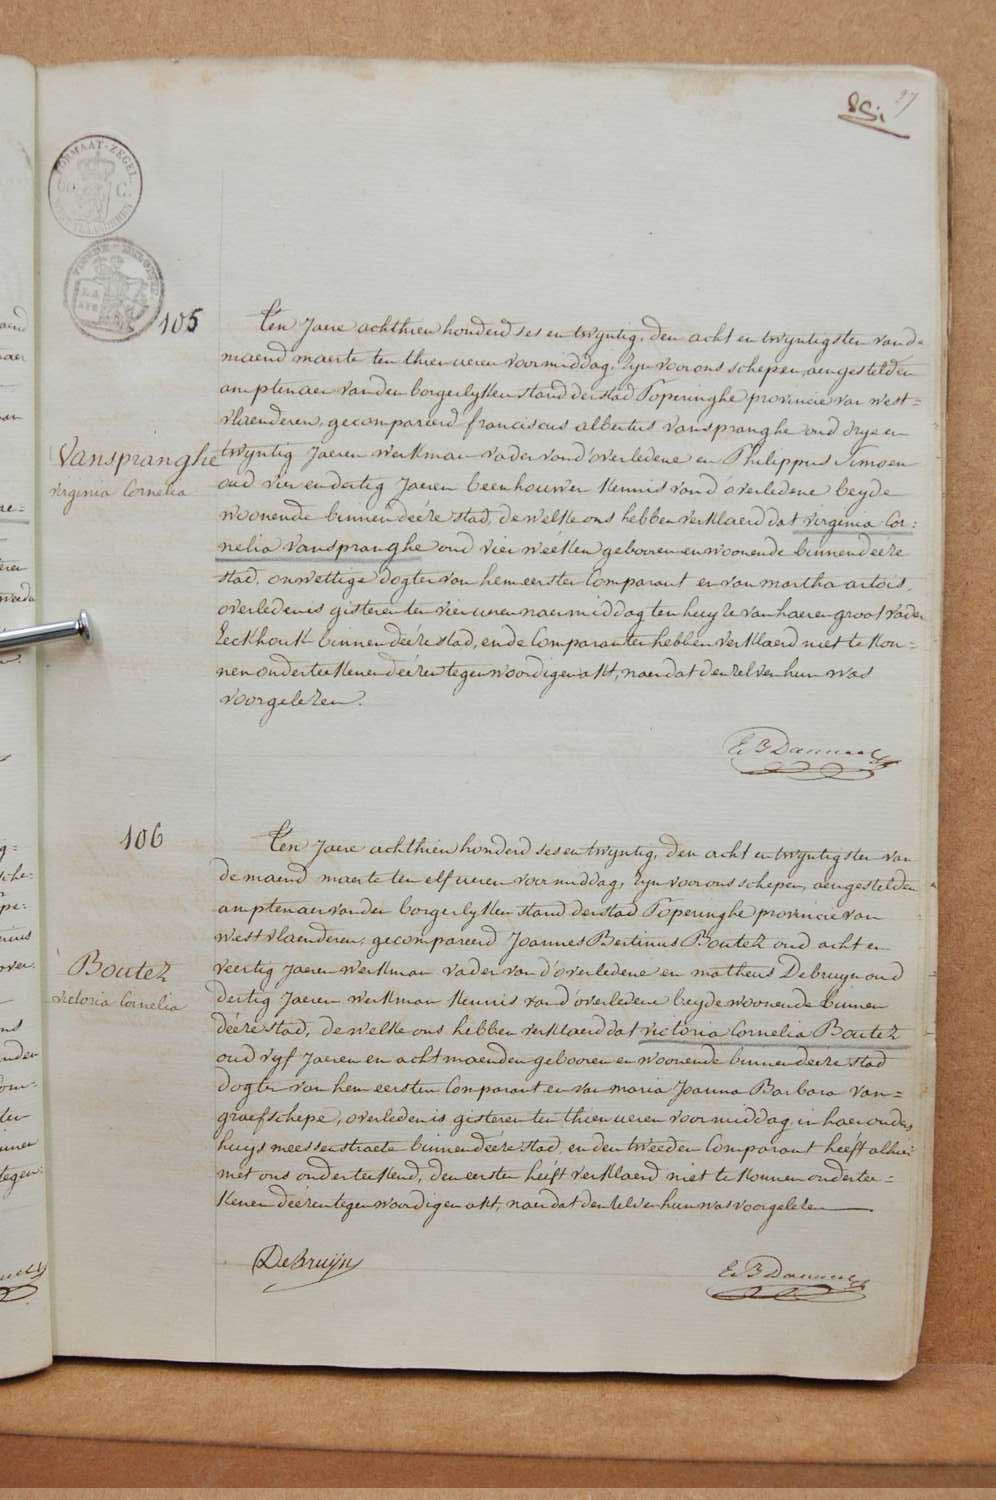 27
FORMAAT-ZEGEL
C.
105
Ten Jaere achthien honderd ses en twyntig, den acht en twyntigsten van de
maend maerte ten thien ueren voormiddag, zyn voor ons schepen, aengestelden
amptenaer van den borgerlyken stand der stad Poperinghe provincie van west=
vlaenderen, gecompareerd franciscus albertus vanspranghe oud drye en
Vanspranghe
virginia Cornelia
twyntig Jaeren werkman vader vand'overledene en Philippus Simoen
oud vier en dertig Jaeren beenhouwer kennis vand'overledene beyde
woonende binnen deéze stad, de welke ons hebben verklaerd dat virginia Cor=
nelia vanspranghe oud vier weéken gebooren en woonende binnen deéze
stad, onwettige dogter van hem eersten Comparant en van martha artois,
overleden is gisteren ten vier ueren naermiddag ten huyze van haeren groot vader
Eeckhout binnen deéze stad, en de Comparanten hebben verklaerd niet te kon=
nen onderteekenen deézen tegenwoordigen akt, naer dat den zelven hun was
voorgelezen.
106
Ten Jaere achthien honderd ses en twyntig, den acht en twyntigsten van
de maend maerte ten elf ueren voormiddag, zyn voor ons schepen, aengestelden
amptenaer van den borgerlyken stand der stad Poperinghe provincie van
westvlaenderen, gecompareerd Joannes Bertinus Boutez oud acht en
Boutez
victoria Cornelia
veertig Jaeren werkman vader van d'overledene en matheus Debruyn oud
dertig Jaeren werkman kennis vand'overledene beyde woonende binnen
deéze stad, de welke ons hebben verklaerd dat victoria Cornelia Boutez
oud vyf Jaeren en acht maenden gebooren en woonende binnen deéze stad
dogter van hem eersten Comparant en van maria Joanna Barbara van=
graefschepe, overleden is gisteren ten thien ueren voormiddag in haer ouders
huys meessenstraete binnen deéze stad, en den tweeden Comparant heéft alhier
met ons onderteekend, den eersten heéft verklaerd niet te konnen onderteé=
kenen deézen tegenwoordigen akt, naer dat den zelven hun was voorgelezen
DeBruijn